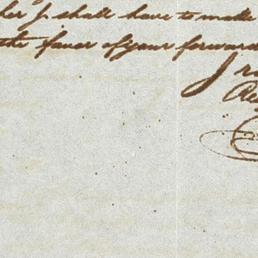 her I shall have to make
the favor of your forward
I r
Re